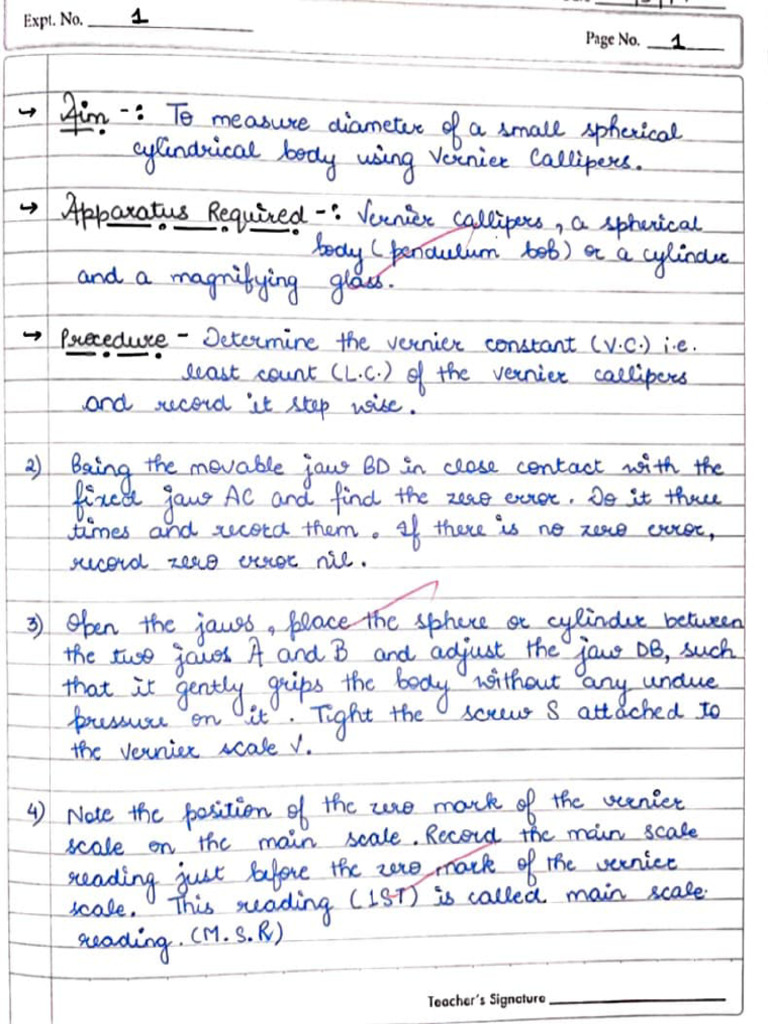 Expt. No. 1
Page No. 1
→ Aim -: To measure diameter of a small spherical
cylindrical body using Vernier Callipers.
→ Apparatus Required -: Vernier callipers, a spherical
body (pendulum bob) or a cylinder
and a magnifying glass.
→ Procedure - Determine the vernier constant (V.C.) i.e.
least count (L.C.) of the vernier callipers
and record it step wise.
2) Bring the movable jaw BD in close contact with the
fixed jaw AC and find the zero error. Do it three
times and record them. If there is no zero error,
record zero error nil.
3) Open the jaws, place the sphere or cylinder between
the two jaws A and B and adjust the jaw DB, such
that it gently grips the body without any undue
pressure on it. Tight the screw S attached to
the vernier scale V.
4) Note the position of the zero mark of the vernier
scale on the main scale. Record the main scale
reading just before the zero mark of the vernier
scale. This reading (1ST) is called main scale
reading. (M.S.R)
Teacher's Signature